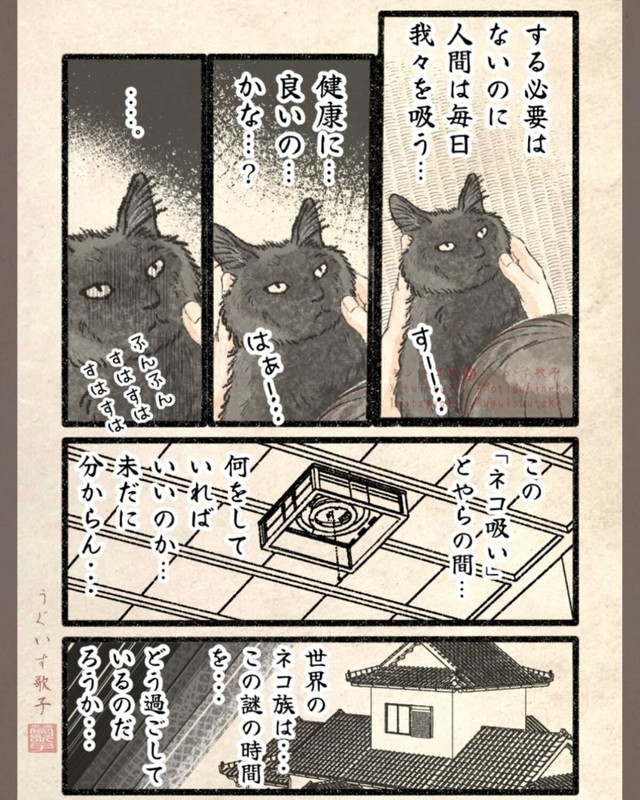 する必要は
ないのに
人間は毎日
我々を吸う…
すー…
健康に…
良いの…
かな…?
はぁー…
…。
ふんふん
すはすは
すはすは
この
「ネコ吸い」
とやらの間…
何をして
いれば
いいのか…
未だに
分からん…
世界の
ネコ族は…
この謎の時間
を…
どう過ごして
いるのだ
ろうか…
うぐいす歌子